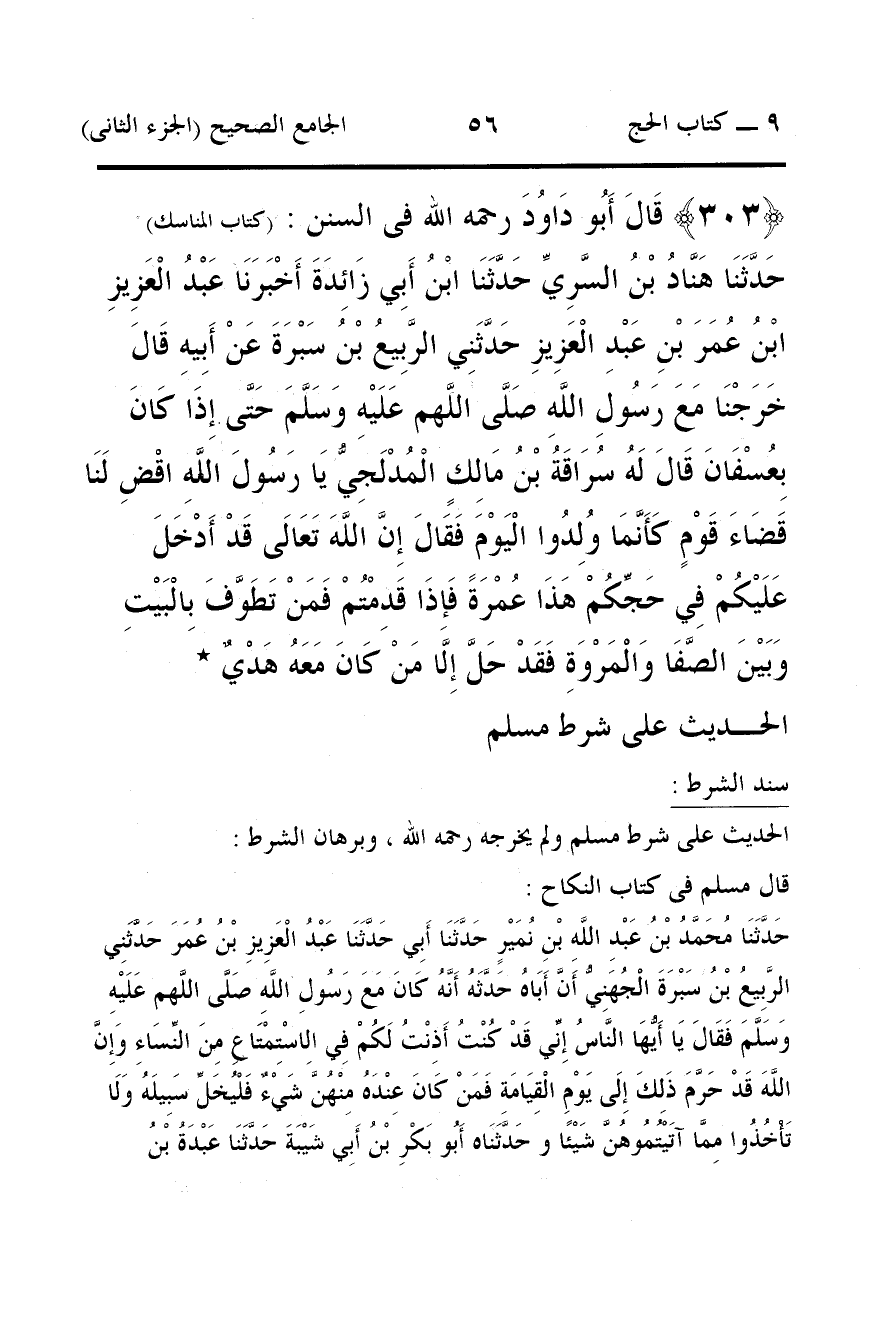 ٩ ــ كتاب الحج ٥٦ الجامع الصحيح (الجزء الثانى)
﴿٣٠٣﴾ قَالَ أَبُو دَاوُدَ رحمه الله فى السنن : (كتاب المناسك)
حَدَّثَنَا هَنَّادُ بْنُ السَّرِيِّ حَدَّثَنَا ابْنُ أَبِي زَائِدَةَ أَخْبَرَنَا عَبْدُ الْعَزِيزِ
ابْنُ عُمَرَ بْنِ عَبْدِ الْعَزِيزِ حَدَّثَنِي الرَّبِيعُ بْنُ سَبْرَةَ عَنْ أَبِيهِ قَالَ
خَرَجْنَا مَعَ رَسُولِ اللَّهِ صَلَّى اللَّهم عَلَيْهِ وَسَلَّمَ حَتَّى إِذَا كَانَ
بِعُسْفَانَ قَالَ لَهُ سُرَاقَةُ بْنُ مَالِكٍ الْمُدْلَجِيُّ يَا رَسُولَ اللَّهِ اقْضِ لَنَا
قَضَاءَ قَوْمٍ كَأَنَّمَا وُلِدُوا الْيَوْمَ فَقَالَ إِنَّ اللَّهَ تَعَالَى قَدْ أَدْخَلَ
عَلَيْكُمْ فِي حَجِّكُمْ هَذَا عُمْرَةً فَإِذَا قَدِمْتُمْ فَمَنْ تَطَوَّفَ بِالْبَيْتِ
وَبَيْنَ الصَّفَا وَالْمَرْوَةِ فَقَدْ حَلَّ إِلَّا مَنْ كَانَ مَعَهُ هَدْيٌ *
الحــديث على شرط مسلم
سند الشرط :
الحديث على شرط مسلم ولم يخرجه رحمه الله ، وبرهان الشرط :
قال مسلم فى كتاب النكاح :
حَدَّثَنَا مُحَمَّدُ بْنُ عَبْدِ اللَّهِ بْنِ نُمَيْرٍ حَدَّثَنَا أَبِي حَدَّثَنَا عَبْدُ الْعَزِيزِ بْنُ عُمَرَ حَدَّثَنِي
الرَّبِيعُ بْنُ سَبْرَةَ الْجُهَنِيُّ أَنَّ أَبَاهُ حَدَّثَهُ أَنَّهُ كَانَ مَعَ رَسُولِ اللَّهِ صَلَّى اللَّهم عَلَيْهِ
وَسَلَّمَ فَقَالَ يَا أَيُّهَا النَّاسُ إِنِّي قَدْ كُنْتُ أَذِنْتُ لَكُمْ فِي الِاسْتِمْتَاعِ مِنَ النِّسَاءِ وَإِنَّ
اللَّهَ قَدْ حَرَّمَ ذَلِكَ إِلَى يَوْمِ الْقِيَامَةِ فَمَنْ كَانَ عِنْدَهُ مِنْهُنَّ شَيْءٌ فَلْيُخَلِّ سَبِيلَهُ وَلَا
تَأْخُذُوا مِمَّا آتَيْتُمُوهُنَّ شَيْئًا و حَدَّثَنَاه أَبُو بَكْرِ بْنُ أَبِي شَيْبَةَ حَدَّثَنَا عَبْدَةُ بْنُ